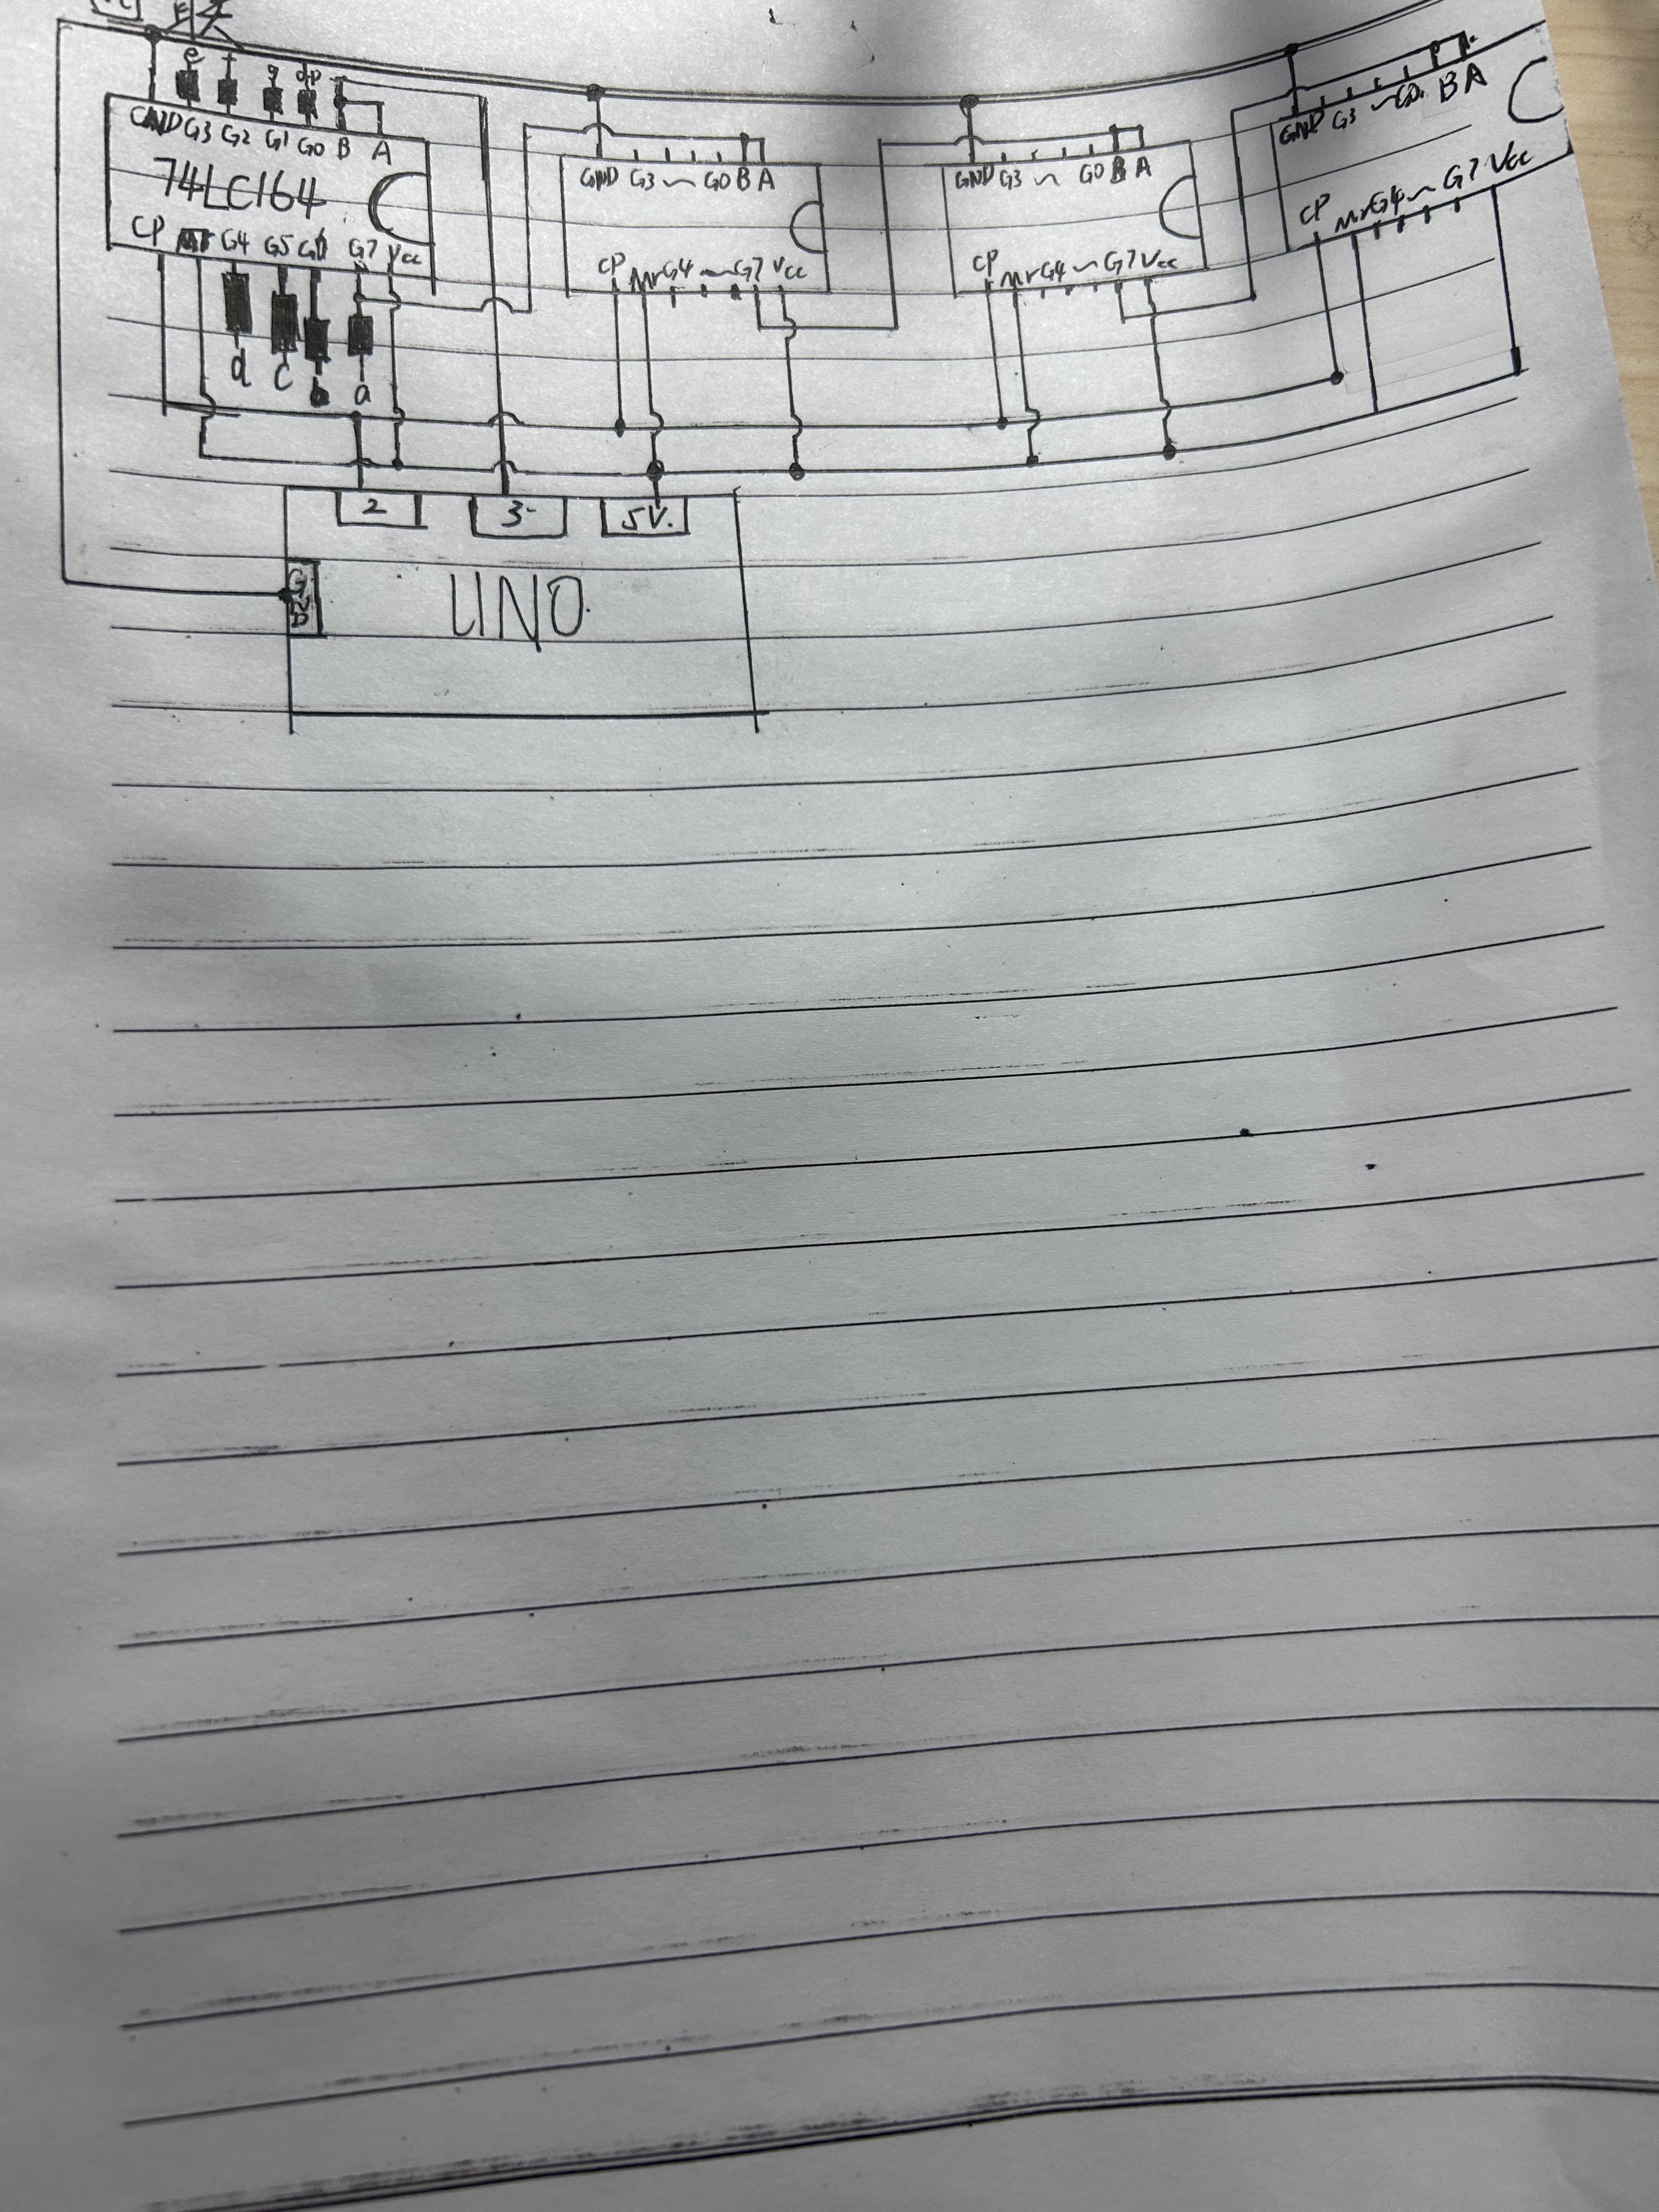 e f g dp
GND G3 G2 G1 G0 B A
74LC164
CP Mr G4 G5 G6 G7 Vcc
d c b a
GND G3 ~ G0 B A
CP Mr G4 ~ G7 Vcc
GND G3 ~ G0 B A
CP Mr G4 ~ G7 Vcc
GND G3 ~ G0 B A
CP Mr G4 ~ G7 Vcc
2 3 5V.
GND
UNO